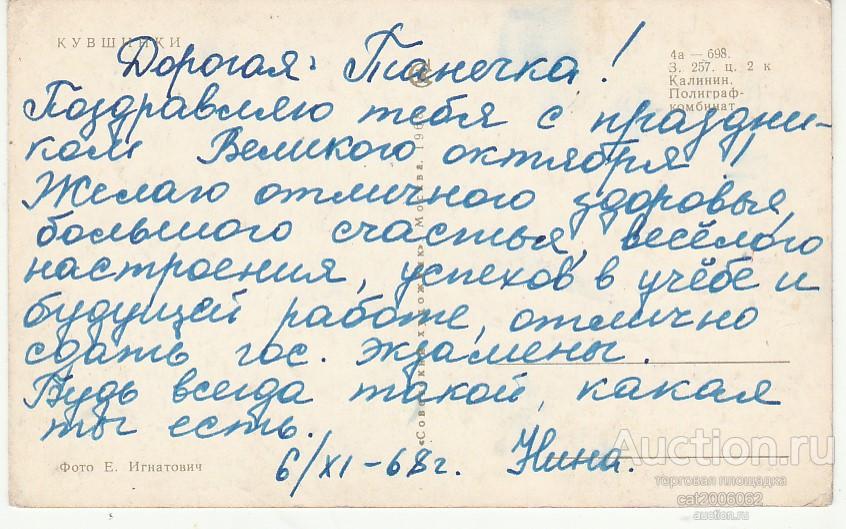 КУВШИНКИ
4а — 698.
З. 257. ц. 2 к
Калинин.
Полиграф-
комбинат
Дорогая Танечка!
Поздравляю тебя с праздни-
ком Великого октября!
Желаю отличного здоровья,
большого счастья, весёлого
настроения, успехов в учёбе и
будущей работе, отлично
сдать гос. экзамены.
Будь всегда такой, какая
ты есть.
6/XI-68г. Нина.
«Советский художник» Москва. 196
Фото Е. Игнатович
Auction.ru
торговая площадка
cat2006062
auction.ru